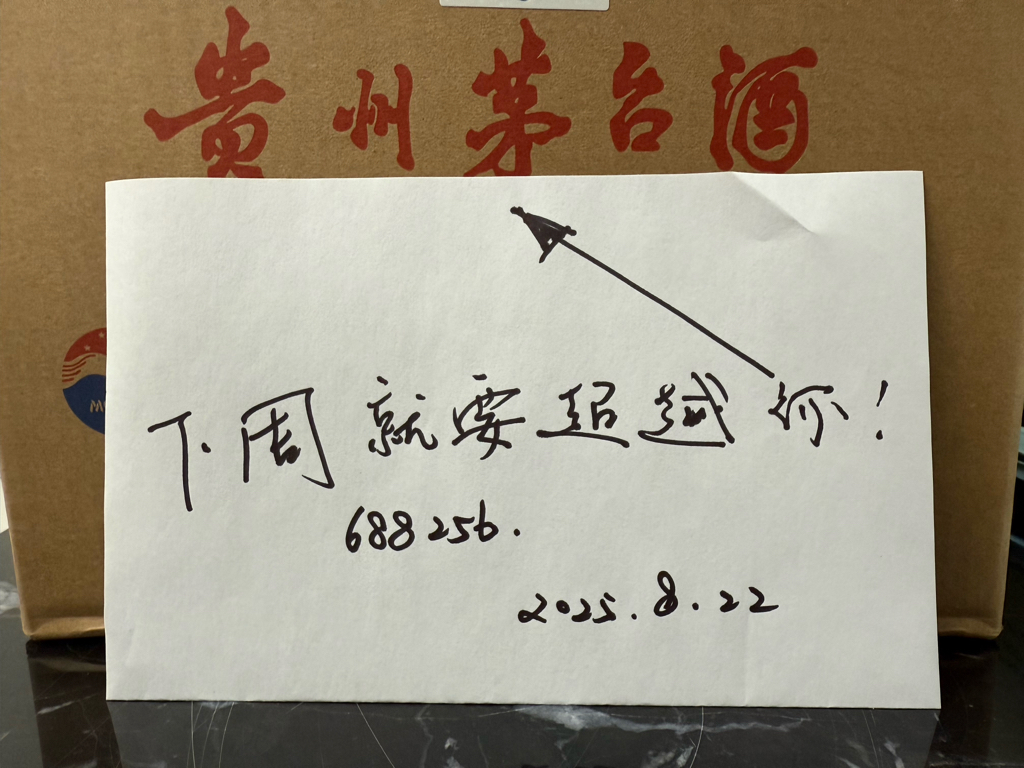 贵州茅台酒
下周就要超越你!
688256.
2025.8.22